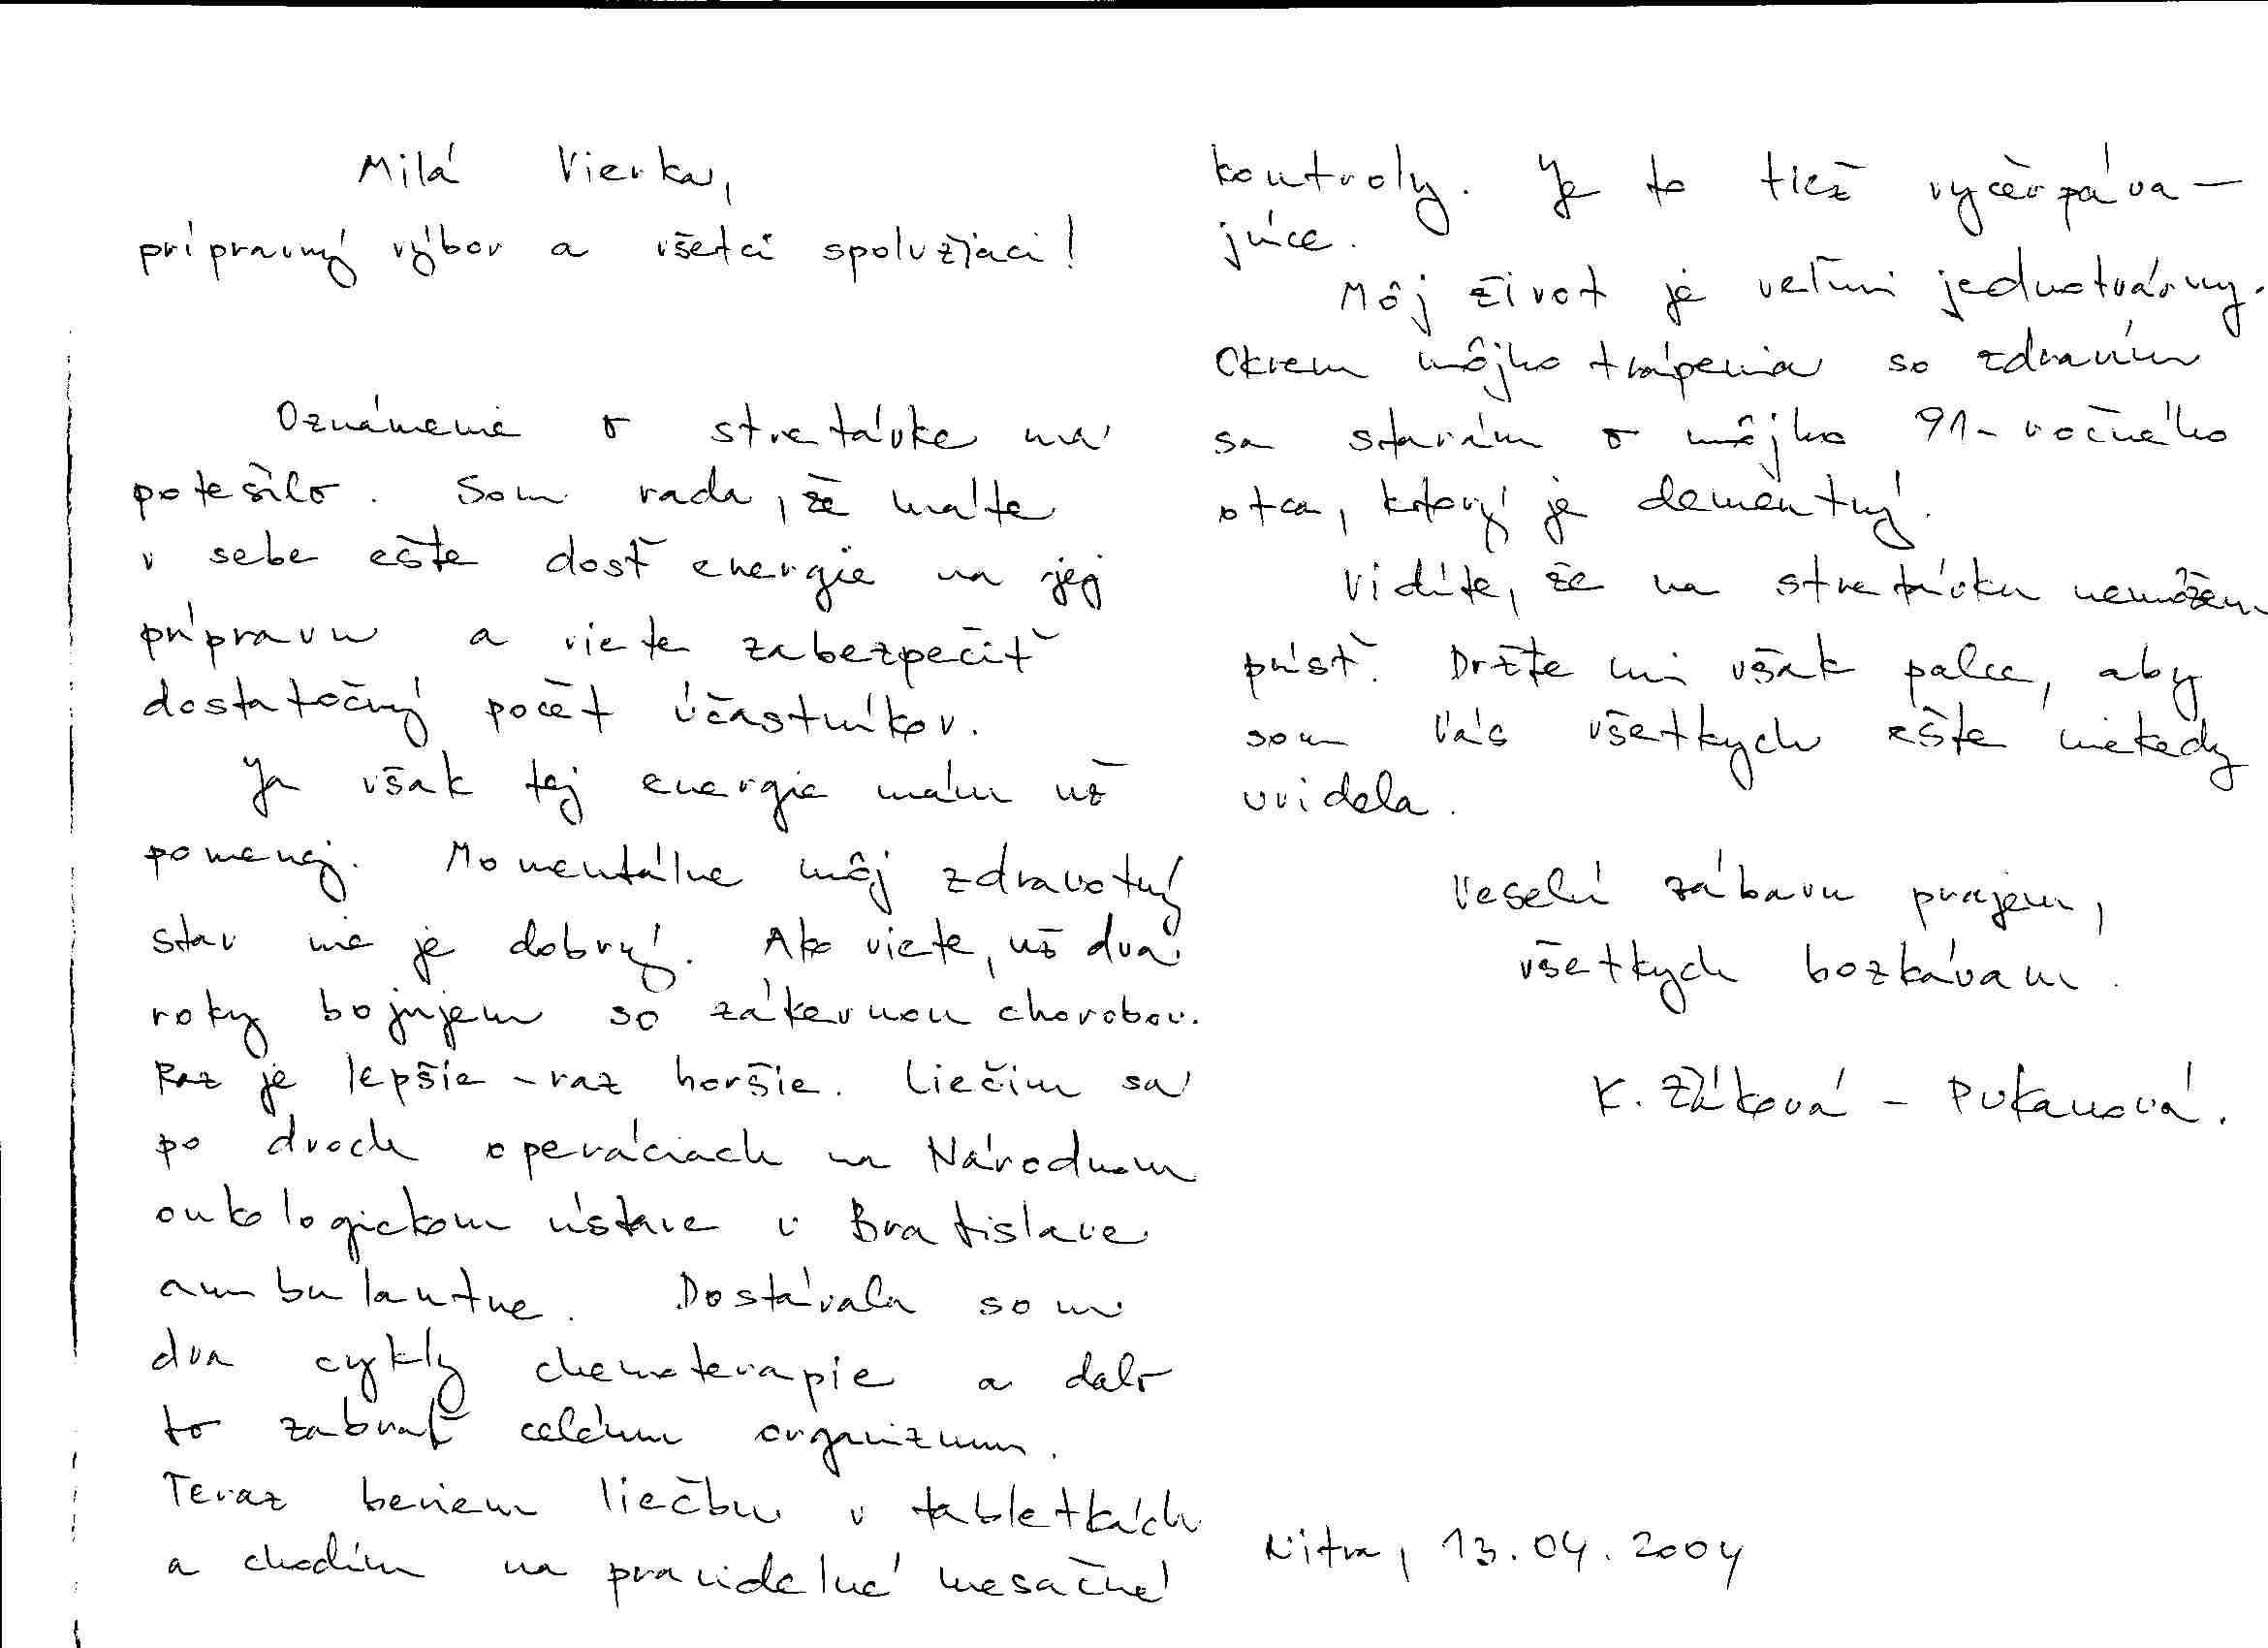 Milá Vierka,
prípravný výbor a všetci spolužiaci!
Oznámenie o stretávke ma
potešilo. Som rada, že máte
v sebe ešte dosť energie na jej
prípravu a viete zabezpečiť
dostatočný počet účastníkov.
Ja však tej energie mám už
pomenej. Momentálne môj zdravotný
stav nie je dobrý. Ako viete, už dva
roky bojujem so zákernou chorobou.
Raz je lepšie - raz horšie. Liečim sa
po dvoch operáciach na Národnom
onkologickom ústave v Bratislave
ambulantne. Dostávala som
dva cykly chemoterapie a dalo
to zabrať celému organizmu.
Teraz beriem liečbu v tabletkách
a chodím na pravidelné mesačné
kontroly. Je to tiež vyčerpáva-
júce.
Môj život je veľmi jednotvárny.
Okrem môjho trápenia so zdravím
sa starám o môjho 91-ročného
otca, ktorý je dementný.
Vidíte, že na stretávku nemôžem
prísť. Držte mi však palce, aby
som Vás všetkých ešte niekedy
uvidela.
Veselú zábavu prajem,
všetkých bozkávam.
K. - Pukanová.
Nitra, 13.04.2004